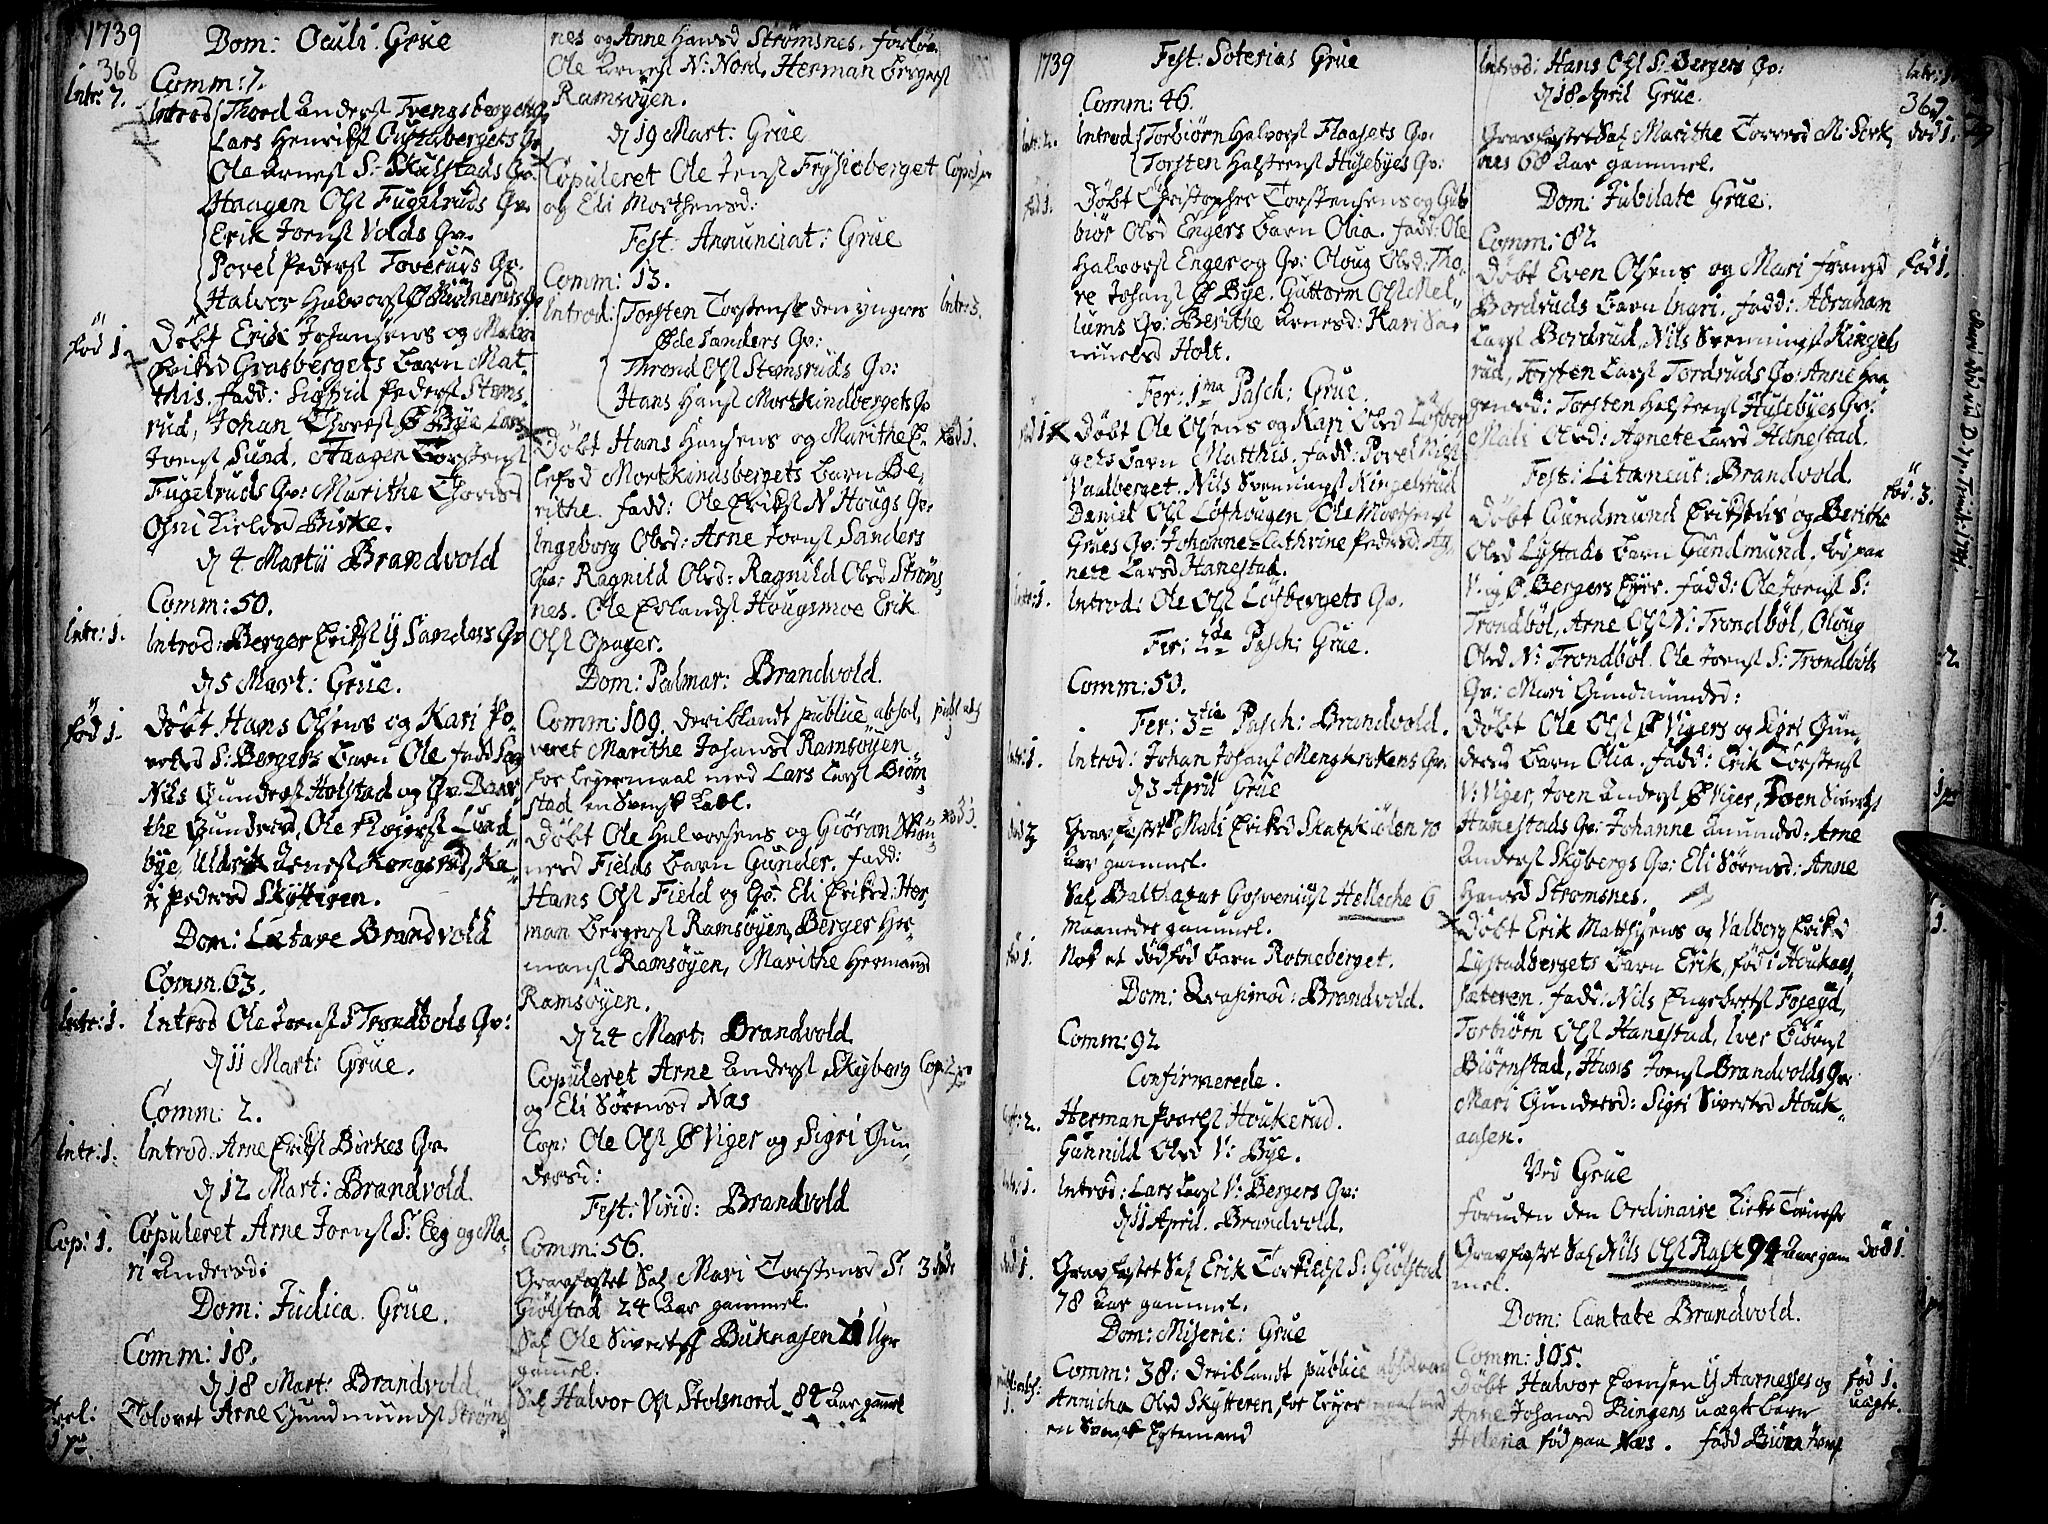 1739
368
Dom: Oculi Grue
Comm: 7.
Intr: 7.
Introd Thord Anderst
Lars Henrikst Gv
Ole Arnest S: Skulstads Gv.
Haagen Olst Fugelruds Gv.
Erik Joenst Volds Gv.
Povel Pederst Toveruds Gv.
Halvor Halvorst Gv
fød 1.
Døbt Erik Johansens og
Eriksd Grasbergets barn Mat
this. fadd: Sigfrid Pederst Stems
rud, Johan Thorest Ø Bye Lars
Joenst Sund. Haagen Torstenst
Fugelruds Gv: Marithe Thorsd
Ogni Kieldsd Birke.
d 4 Martij Brandvold
Comm: 50.
Intr: 1.
Introd: Berger Erikst Y Sanders Gv
d 5 Mart: Grue.
fød 1.
Døbt Hans Olsens og Kari Po,
velsd S: Bergers barn Ole fadd
Nils Gunderst Holstad og Gv.
the Gundersd, Ole Lund
bye, Uldrik Arnest Kongsrud, Ka
ri Pedersd Skytteren.
Dom: Lætare Brandvold
Comm. 63.
Intr: 1.
Introd Ole Joenst S Trondbøls Gv:
d 11 Mart: Grue.
Comm: 2.
Intr: 1.
Introd: Arne Erikst Birkes Gv.
d 12 Mart: Brandvold.
Cop: 1.
Copuleret Arne Joenst S: Eeg og Ma,
ri Andersd:
Dom: Judica. Grue.
Comm: 18.
d 18 Mart: Brandvold
Trol:
1 par
Troloret Arne Gundmundst Strøms
nes og Anne Hansd Strømsnes. forlov.
Ole Arnest N: Nord, Herman Bergerst
Ramsøyen.
d 19 Mart: Grue
Copuleret Ole Jenst Frysioberget
og Eli Morthensd:
Fest: Annunciat: Grue
Comm: 13.
Introd: Torsten Torstenst den yngres
Øde Sanders Gv:
Intr: 3.
Thrond Olst Stemsruds Gv:
Hans Hanst Mortkindbergets Gv
fød 1.
Døbt Hans Hansens og Marithe E,
lefsd Mortkindsbergets barn Be,
rithe. fadd: Ole Erikst N Hougs Gv:
Ingeborg Olsd: Arne Joenst Sanders
Gv: Ragnild Olsd: Ragnild Olsd Strøms
nes. Ole Erlandst Hougsmoe Erik
Olst Opager.
Dom: Palmar: Brandvold.
Comm: 109. deriblandt publice absol,
veret Marithe Johansd Ramsøyen
for Leyermaal med Lars Larst Biørn
stad en Svensk Karl.
Døbt Ole Halvorsens og Giøran
nesd Fields barn Gunder. fadd:
Hans Olst Field og Gv: Eli Eriksd: Her,
man Bergerst Ramsøyen, Berger Her,
manst Ramsøyen, Marithe Hermansd
Ramsøyen.
d 24 Mart: Brandvold.
Copuleret Arne Anderst Skyberg
og Eli Sørensd Næs
Cop: Ole Olst Ø Viger og Sigri Gun,
dersd:
Fest: Virid: Brandvold
Comm: 56.
Gravfæstet Sal Mari Torstensd S:
Giølstad 24 Aar gammel.
3 døde
Sal Ole Sivertst Buknasen Uger
gammel.
Sal Halvor Olst Stolsnord 84 Aar gammel
1739
Fest: Soterias Grue
Comm: 46.
Intr: 2.
Introd Torbiørn Halvorst Flaasets Gv.
Torsten Halstenst Husebyes Gv:
fød 1.
Døbt Christopher Torstensens og Gub
biør Olsd Engers barn Olia. fadd: Ole
Halvorst Enger og Gv: Oloug Olsd: Tho,
re Johanst Ø Bye. Guttorm Olst Mel,
lums Gv: Berithe Arnesd: Kari Sa,
muelsd Holt.
Fer: 1ma Pasch: Grue.
fød 1
Døbt Ole Olsens og Kari Olsd Løfber
gets barn Matthis. fadd: Povel
Vaalberget. Nils Svenningst Kingelsrud
Daniel Olst Løfhougen, Ole Mortenst
Grues Gv: Johanne Cathrine Pedersd: Ag
nete Larsd Hanestad.
Intr: 1.
Introd: Ole Olst Løfbergets Gv.
Fer: 2da Pasch: Grue.
Comm: 50.
Fer: 3tia Pasch: Brandvold.
Intr: 1.
Introd: Johan Johanst Mengkrokens Gv.
d 3 April Grue
Gravfæstet Mali Eriksd Skatpkiølen 70
Aar gammel.
Sal Balthazar Gosveniust Hellsche 6
Maaneder gammel.
fød 1.
Nok et dødfød barn Rotneberget.
Dom: Quasimod: Brandvold.
Comm: 92
Confirmerede.
Herman Houkerud.
Gunnild Olsd V: Bye.
Intr: 1.
Introd: Lars Larst V: Bergers Gv:
d 11 April. Brandvold.
død 1.
Gravfæstet Sal Erik Torkildst S: Giølstad
78 Aar gammel.
Dom: Miseric: Grue
Comm: 38: deriblandt publice absolveret
Annicha Olsd Skytteren, for Leyermaal med
en Svensk Egtemand
Introd: Hans Olst S: Bergers Gv:
d 18 April Grue.
369
død 1.
Gravfæstet Sal Marithe Torersd M: Sork
næs 68 Aar gammel.
Dom: Jubilate Grue.
Comm: 82
fød 1.
Døbt Even Olsens og Mari Fransd
Bordruds barn Ingri. fadd: Abraham
Larst Bordrud, Nils Svenningst Kingels
rud, Torsten Larst Tordruds Gv: Anne Haa
gensd: Torsten Halstenst Husebyes Gv:
Mali Olsd: Agnete Larsd Hanestad.
Fest: Litaniæ: Brandvold.
fød. 3.
Døbt Gundmund Eriksens og Berithe
Olsd Lystads barn Gundmund, fød paa
V: Bergers Eyer. fadd: Ole Joenst S:
Trondbøl, Arne Olst N: Trondbøl, Oloug
Olsd N: Trondbøl. Ole Joenst S: Trondbøls
Gv: Mari Gundmundsd:
Døbt Ole Olst Ø Vigers og Sigri Gun,
dersd barn Olia. fadd: Erik Torstenst
V: Viger, Joen Anderst Ø Viger, Joen Sivertst
Hanestads Gv: Johanne Amundsd: Arne
Anderst Skybergs Gv: Eli Sørensd: Anne
Hansd Strømsnes.
Døbt Erik Matthisens og Valborg Eriksd
Lystadbergets barn Erik, fød i Houkaas,
sæteren. fadd: Nils Engebretst Foseyd,
Torbiørn Olst Hanestad, Iver
Biørnstad, Hans Joenst Brandvolds Gv:
Mari Gundersd: Sigri Sivertsd Houk,
aasen.
Ved Grue
foruden den Ordinaire Kirke Tieniste
død 1.
Gravfæstet Sal Nils Olst Rast 94 Aar gam
mel.
Dom: Cantate Brandvold.
Comm: 105.
fød 1.
uægte.
Døbt Halvor Evensen Y Aarneses og
Anne Johansd Ringens uægte barn
Helena fød paa Næs. fadd Biørn